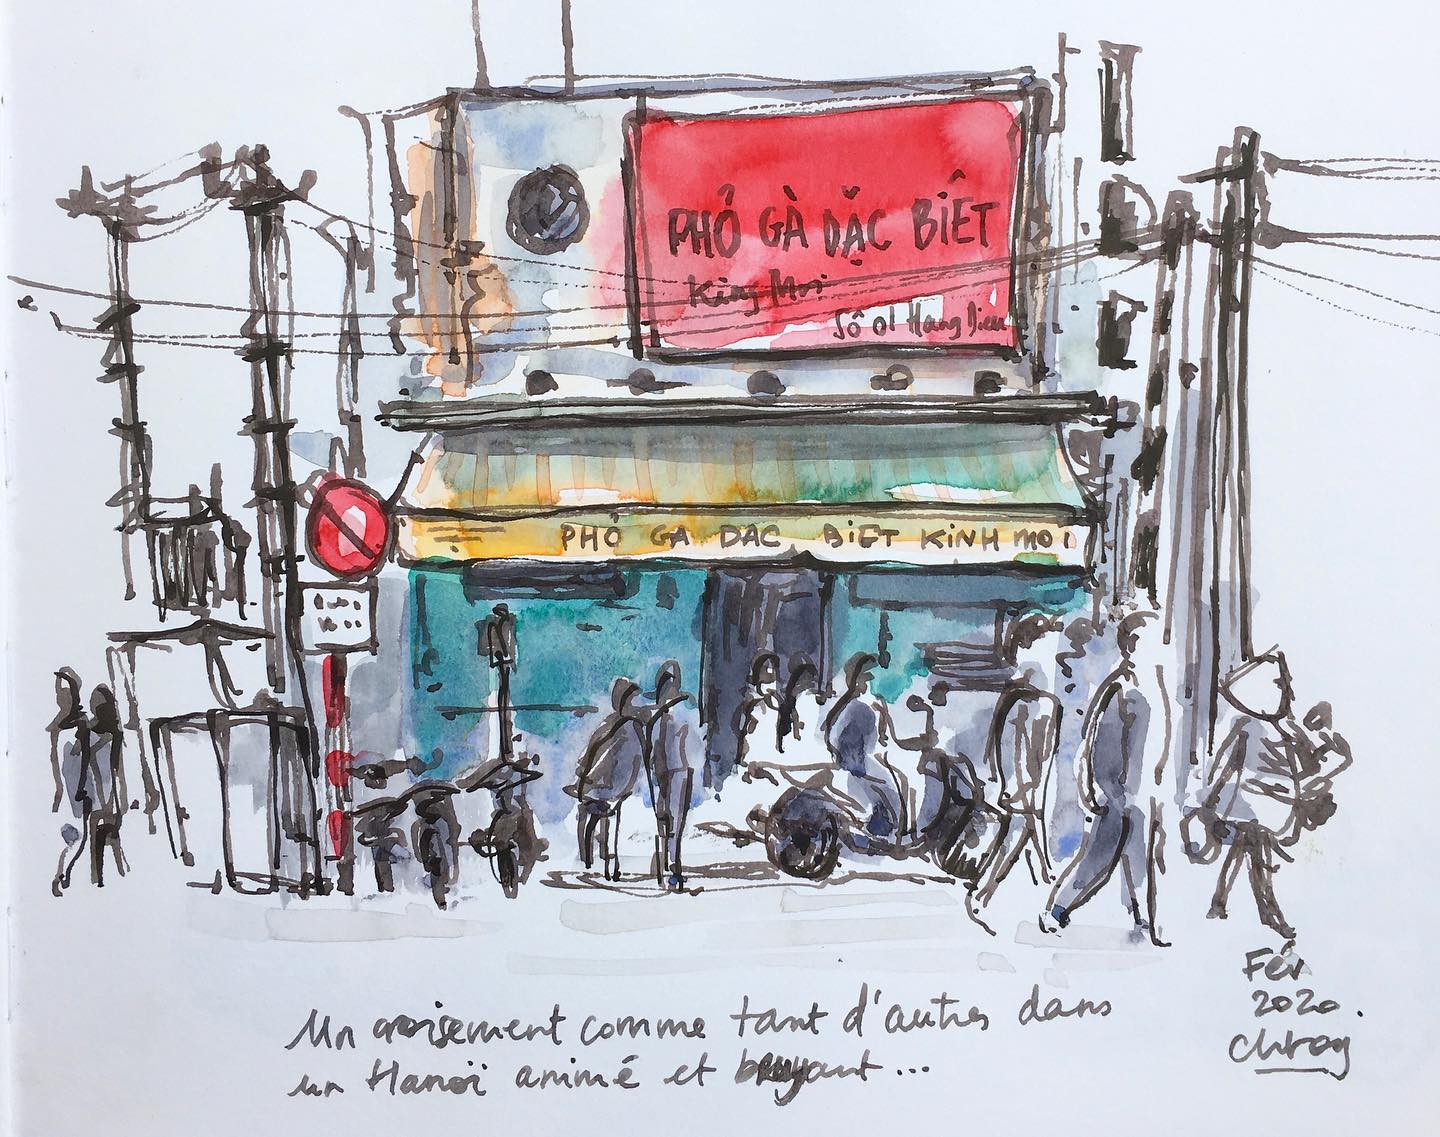 PHỞ GÀ DẶC BIÊT
Số 01 Hang Dieu
PHỞ GA DAC BIET KINH MOI
Fév
2020.
Un croisement comme tant d'autres dans
un Hanoï animé et bruyant...